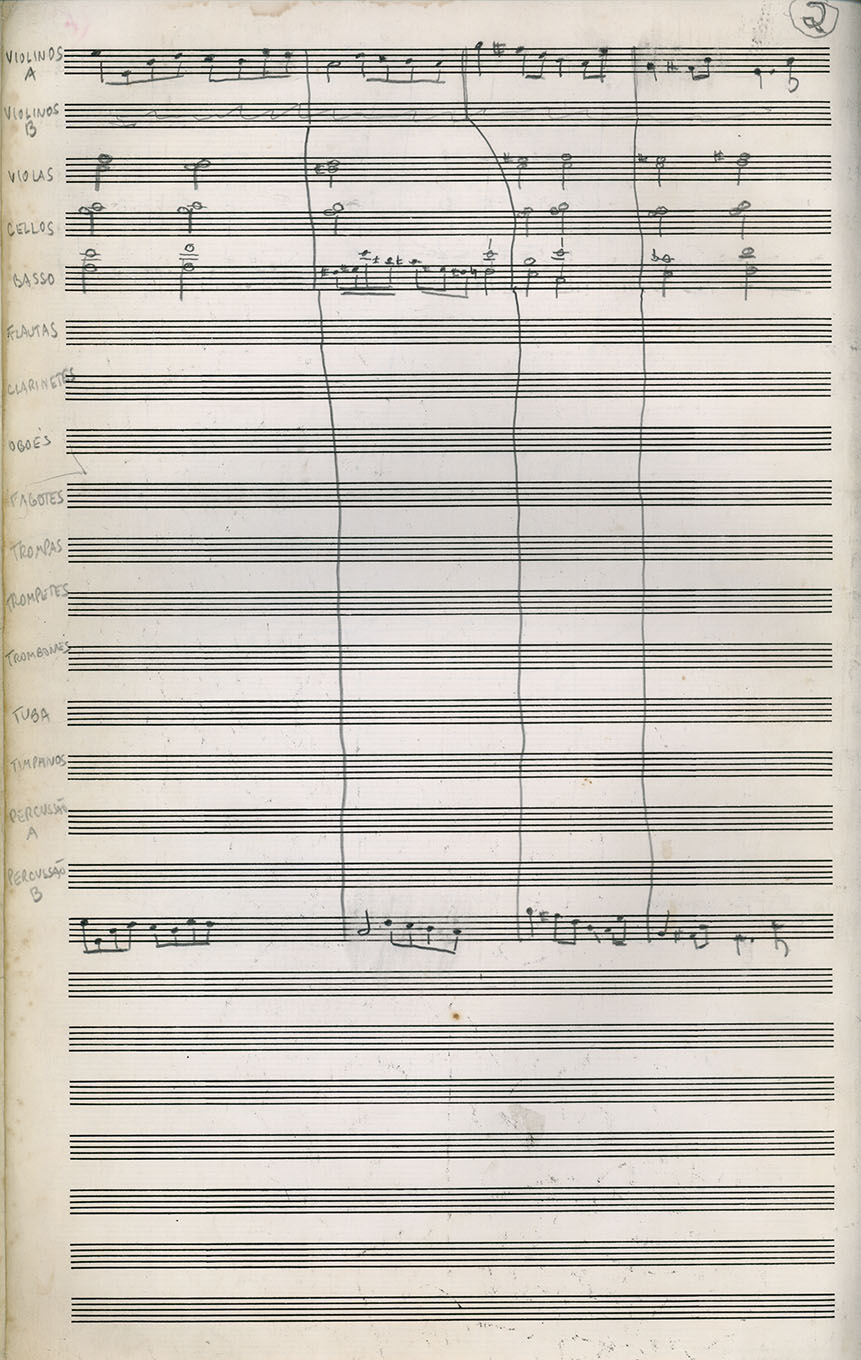 2
VIOLINOS
A
VIOLINOS
B
VIOLAS
CELLOS
BASSO
FLAUTAS
CLARINETES
OBOÉS
FAGOTES
TROMPAS
TROMPETES
TROMBONES
TUBA
TIMPANOS
PERCUSSÃO
A
PERCUSSÃO
B